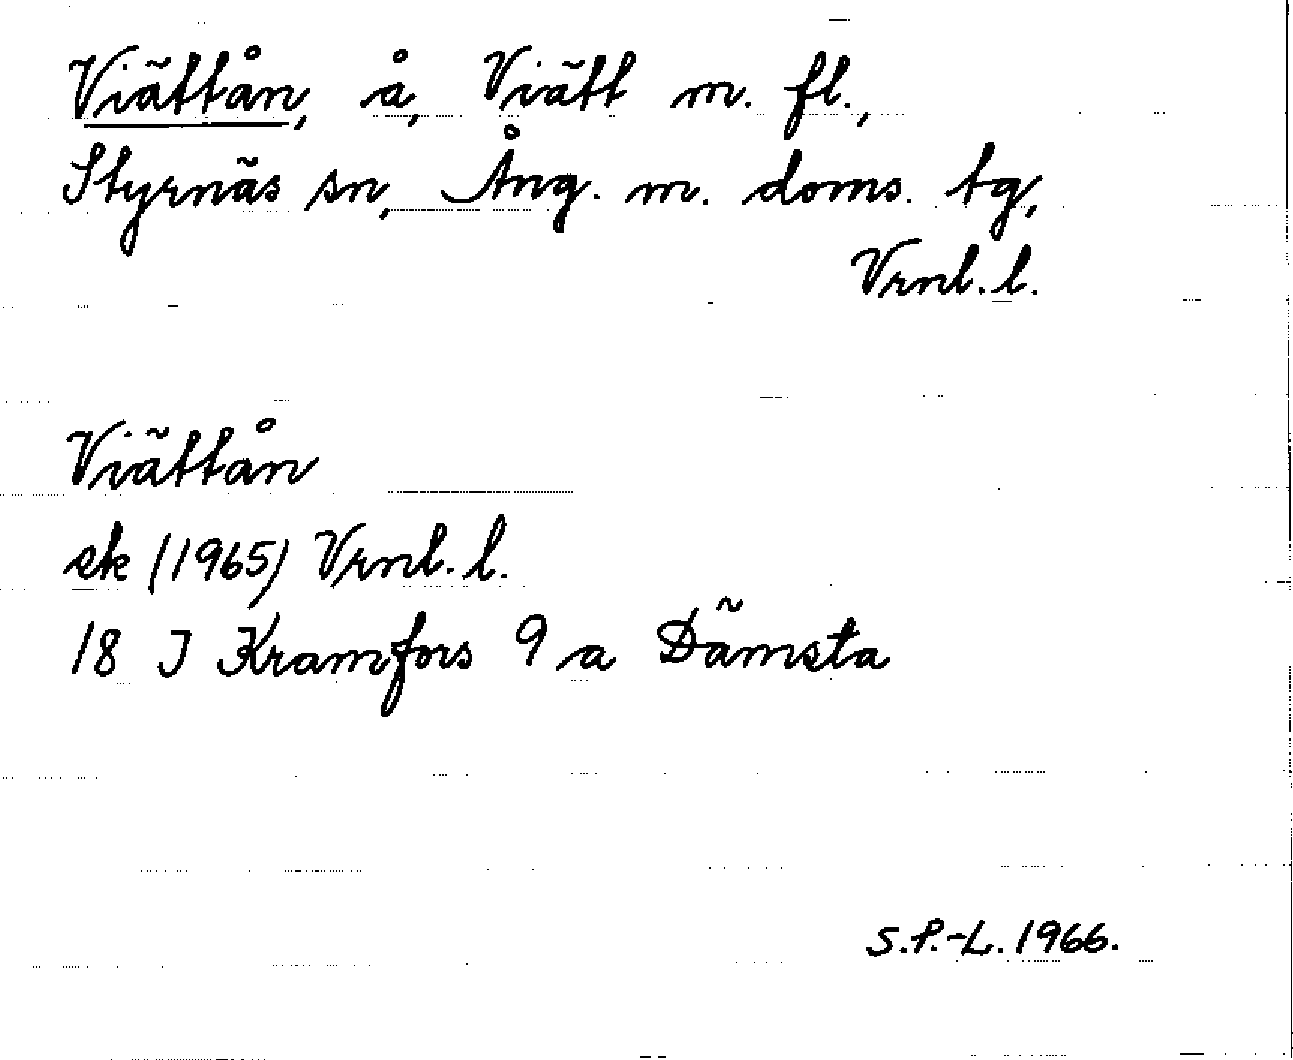 Viättån, å, Viätt m. fl.,
Styrnäs sn, Ång. m. doms. tg,
Vrnl. l.
Viättån
ek (1965) Vrnl. l.
18 J Kramfors 9 a Dämsta
S.P.-L. 1966.